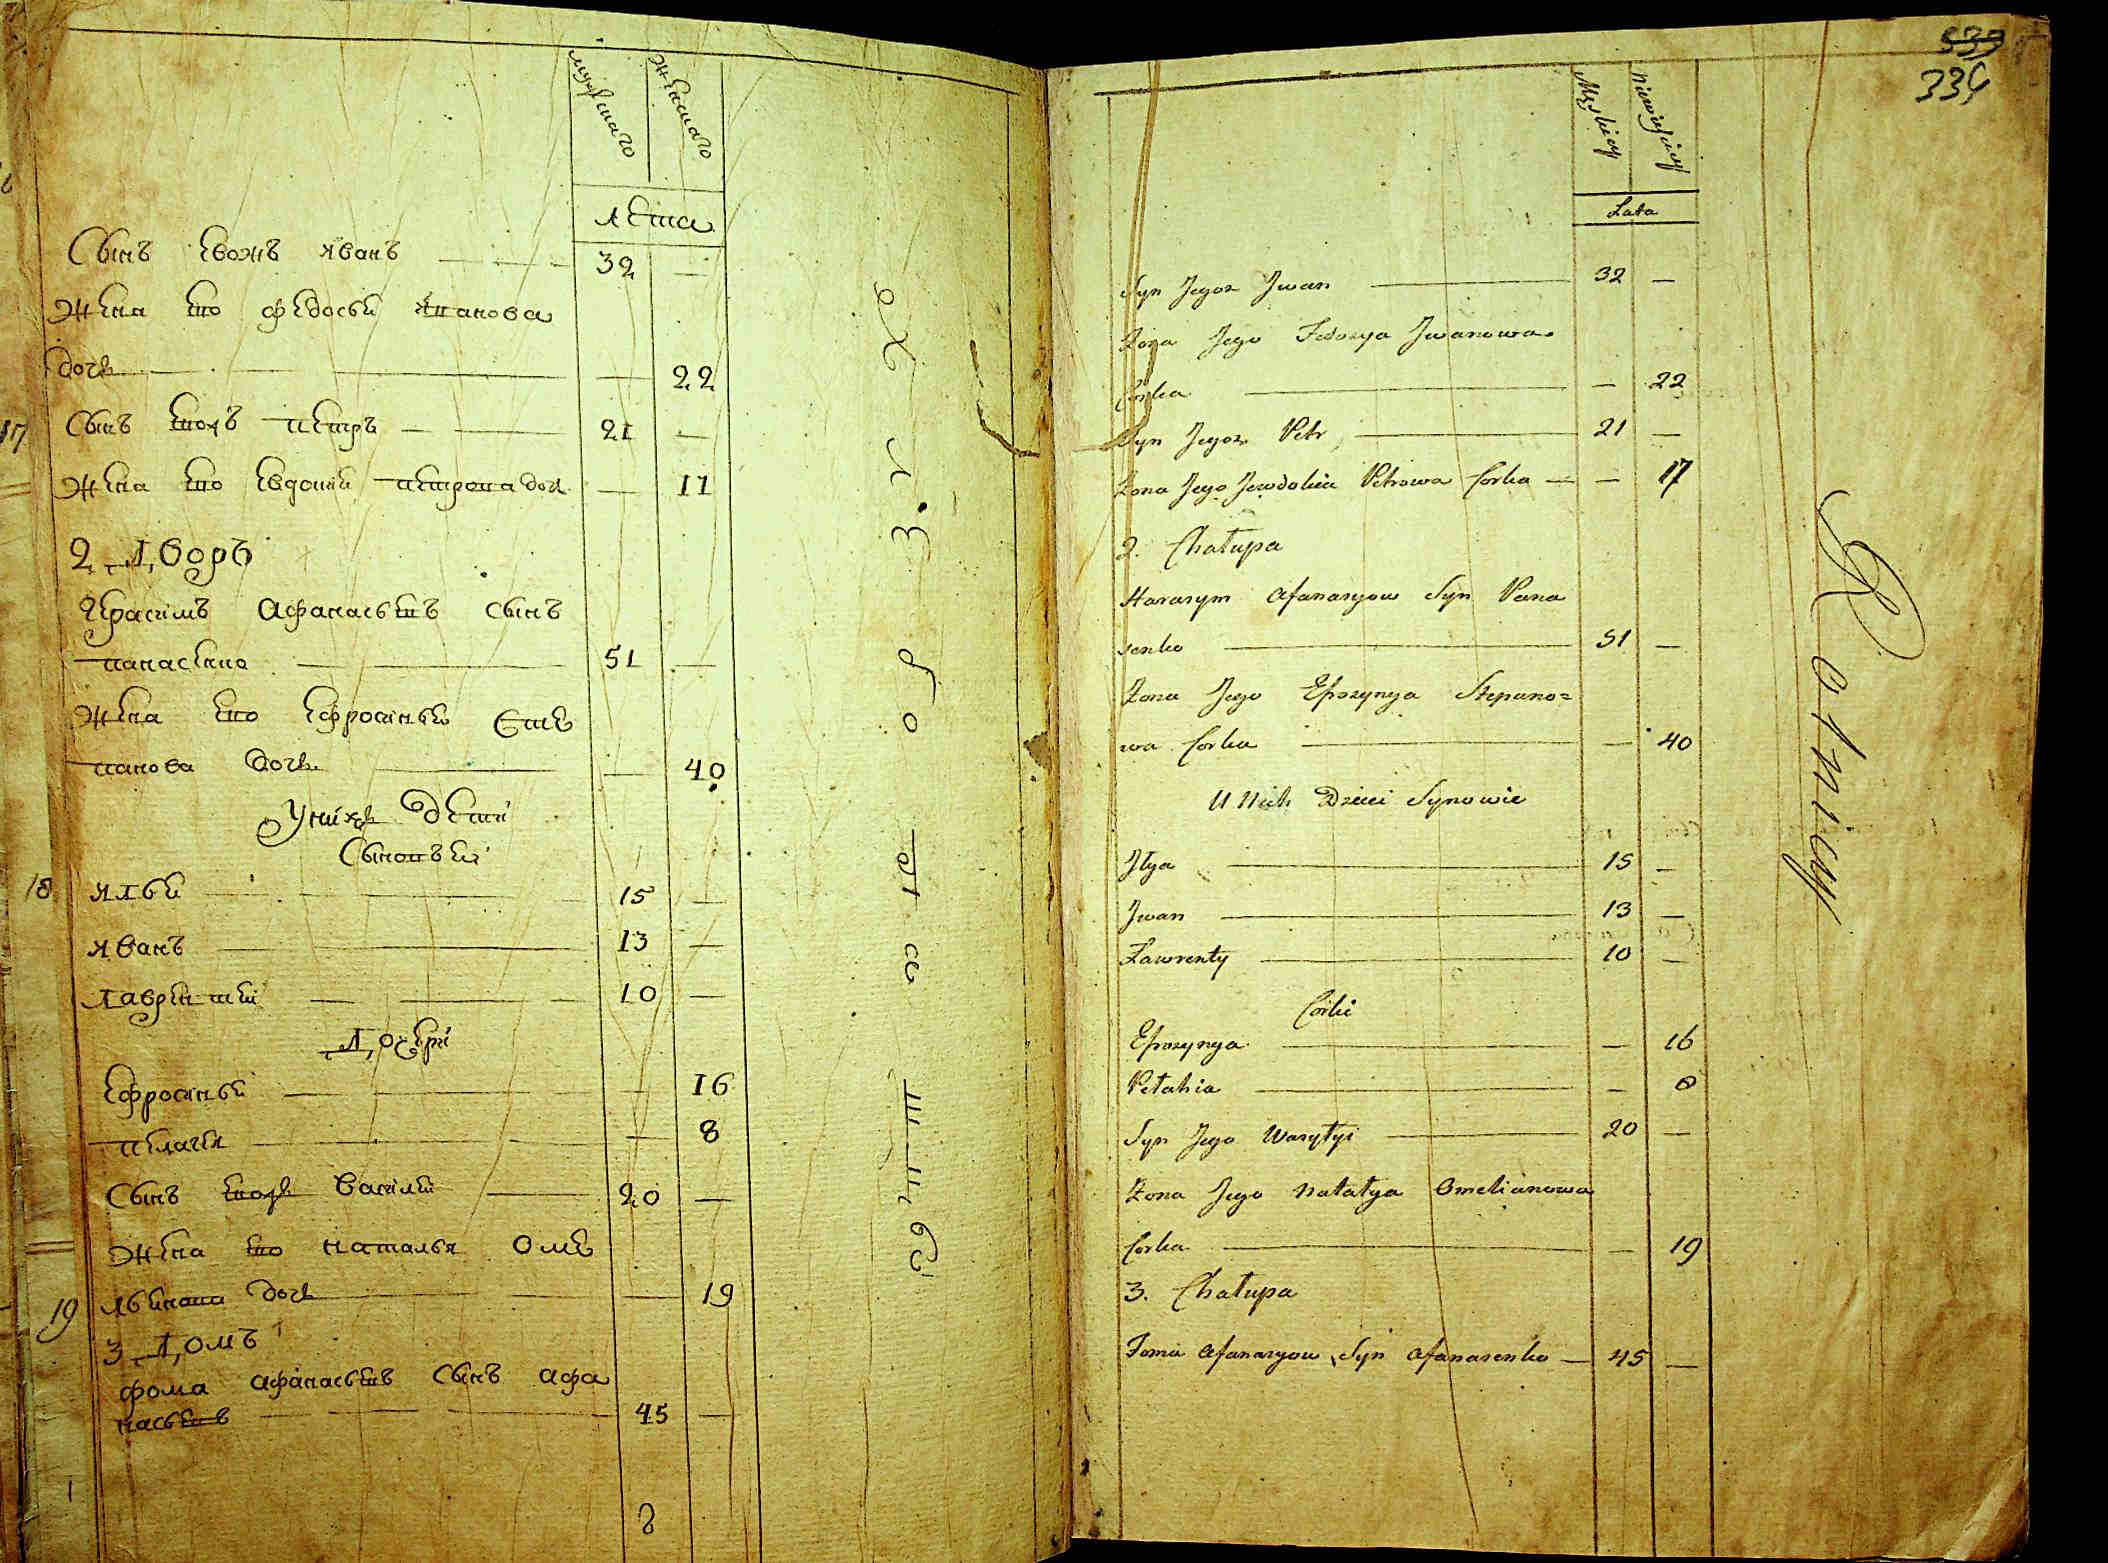 мужскаго
женскаго
лета
Сынъ Евожъ Иванъ 32 —
Жена Его Федосья Иванова
дочь — 22
17 Сынъ Еговъ Петръ 21 —
Жена Его Евдокия Петрова доч. — 17
2 Дворъ
Герасимъ Афанасьевъ Сынъ
панасенко 51 —
Жена Его Ефросинья Сте
панова дочь — 40
Унихъ Дети
Сыновьи
18 Илья 15 —
Иванъ 13 —
Лаврентий 10 —
Дочери
Ефросинья — 16
пелагея — 8
Сынъ Еговъ Василий 20 —
Жена Его Наталья Оме
льянова дочь — 19
19 3 Домъ
фома Афанасьевъ Сынъ Афа
насьевъ 45 —
8
539
334
Męskiey
niewieściey
Lata
Syn Jegoz Jwan 32 —
Żona Jego Fedosya Jwanowa
Corka — 22
Syn Jegoz Petr 21 —
Żona Jego Jewdokia Petrowa Corka — 17
2. Chałupa
Harasym Afanasyow Syn Pana
senko 51 —
Żona Jego Efrozynya Stepano=
wa Corka — 40
U Nich Dzieci Synowie
Jłya 15 —
Jwan 13 —
Ławrenty 10 —
Corki
Efrozynya — 16
Pełahia — 8
Syn Jego Wasyłyi 20 —
Żona Jego Natałya Omelianowa
Corka — 19
3. Chałupa
Foma Afanasyow Syn Afanasenko 45 —
Rolnicy